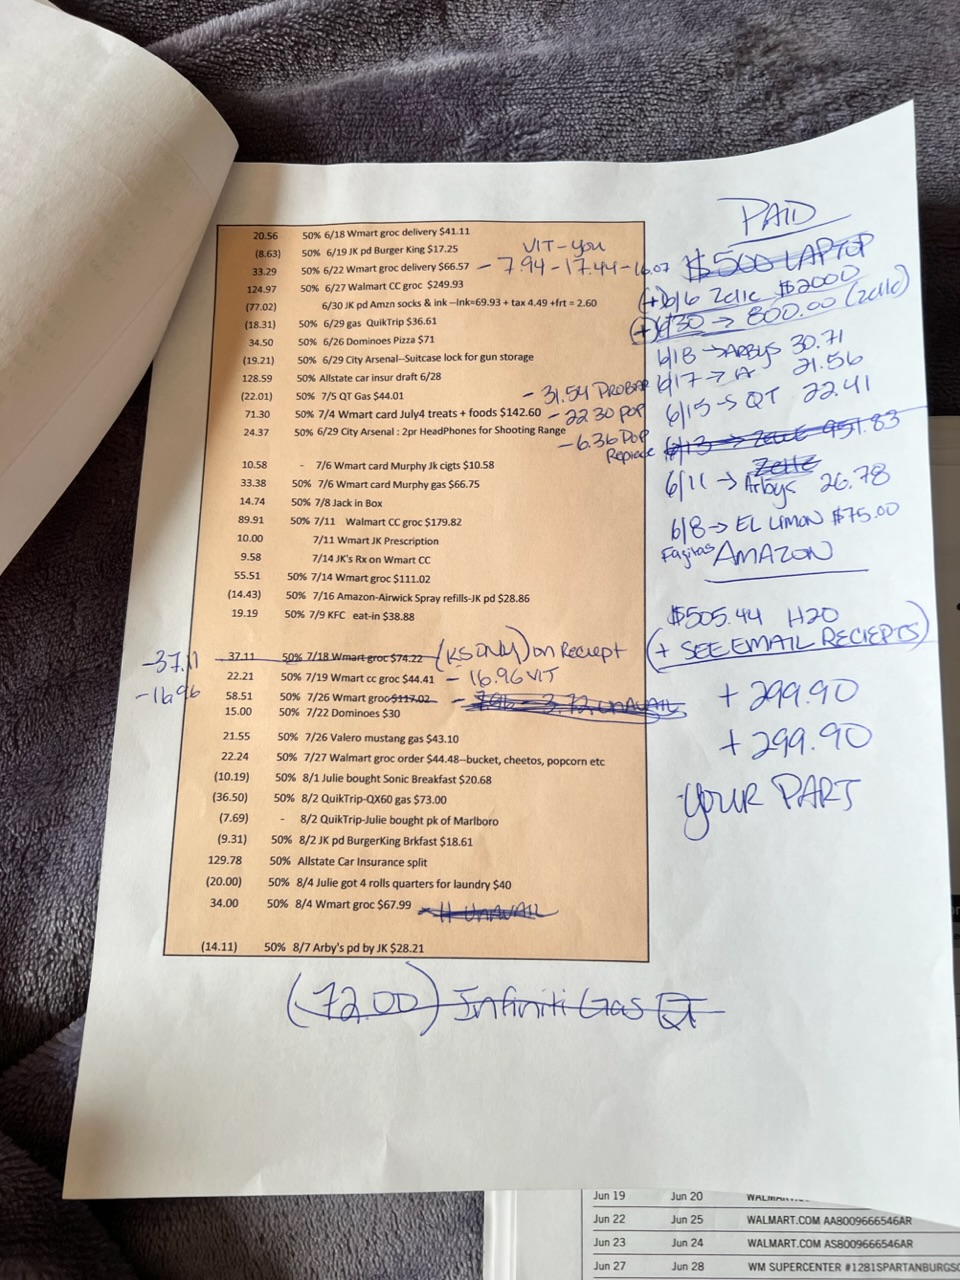 20.56 50% 6/18 Wmart groc delivery $41.11
(8.63) 50% 6/19 JK pd Burger King $17.25
VIT-you
33.29 50% 6/22 Wmart groc delivery $66.57 - 7.94 - 17.44 - 16.07
124.97 50% 6/27 Walmart CC groc $249.93
(77.02) 6/30 JK pd Amzn socks & ink --Ink=69.93 + tax 4.49 +frt = 2.60
(18.31) 50% 6/29 gas QuikTrip $36.61
34.50 50% 6/26 Dominoes Pizza $71
(19.21) 50% 6/29 City Arsenal--Suitcase lock for gun storage
128.59 50% Allstate car insur draft 6/28
(22.01) 50% 7/5 QT Gas $44.01 - 31.54 PROBAR
71.30 50% 7/4 Wmart card July4 treats + foods $142.60 - 22.30 POP
24.37 50% 6/29 City Arsenal : 2pr HeadPhones for Shooting Range - 6.36 POP
Replace
10.58 - 7/6 Wmart card Murphy Jk cigts $10.58
33.38 50% 7/6 Wmart card Murphy gas $66.75
14.74 50% 7/8 Jack in Box
89.91 50% 7/11 Walmart CC groc $179.82
10.00 7/11 Wmart JK Prescription
9.58 7/14 JK's Rx on Wmart CC
55.51 50% 7/14 Wmart groc $111.02
(14.43) 50% 7/16 Amazon-Airwick Spray refills-JK pd $28.86
19.19 50% 7/9 KFC eat-in $38.88
-37.11 37.11 50% 7/18 Wmart groc $74.22 (KS ONLY) on Reciept
22.21 50% 7/19 Wmart cc groc $44.41 - 16.96 VIT
-16.96 58.51 50% 7/26 Wmart groc $117.02 - 7.96 - 3.72 UNAVAIL
15.00 50% 7/22 Dominoes $30
21.55 50% 7/26 Valero mustang gas $43.10
22.24 50% 7/27 Walmart groc order $44.48--bucket, cheetos, popcorn etc
(10.19) 50% 8/1 Julie bought Sonic Breakfast $20.68
(36.50) 50% 8/2 QuikTrip-QX60 gas $73.00
(7.69) - 8/2 QuikTrip-Julie bought pk of Marlboro
(9.31) 50% 8/2 JK pd BurgerKing Brkfast $18.61
129.78 50% Allstate Car Insurance split
(20.00) 50% 8/4 Julie got 4 rolls quarters for laundry $40
34.00 50% 8/4 Wmart groc $67.99 UNAVAIL
(14.11) 50% 8/7 Arby's pd by JK $28.21
(72.00) Infiniti Gas QT
PAID
$500 LAPTOP
(+) 6/6 Zelle $2000
(+) 6/30 → 800.00 (Zelle)
6/18 → ARBYS 30.71
6/17 → A 21.56
6/15 → QT 22.41
6/13 → Zelle 951.83
Zelle
6/11 → Arbys 26.78
6/8 → EL LIMON $75.00
Fajitas
AMAZON
$505.44 H20
(+ SEE EMAIL RECIEPTS)
+ 299.90
+ 299.90
YOUR PART
Jun 19 Jun 20
Jun 22 Jun 25 WALMART.COM AA8009666546AR
Jun 23 Jun 24 WALMART.COM AS8009666546AR
Jun 27 Jun 28 WM SUPERCENTER #1281SPARTANBURGSC